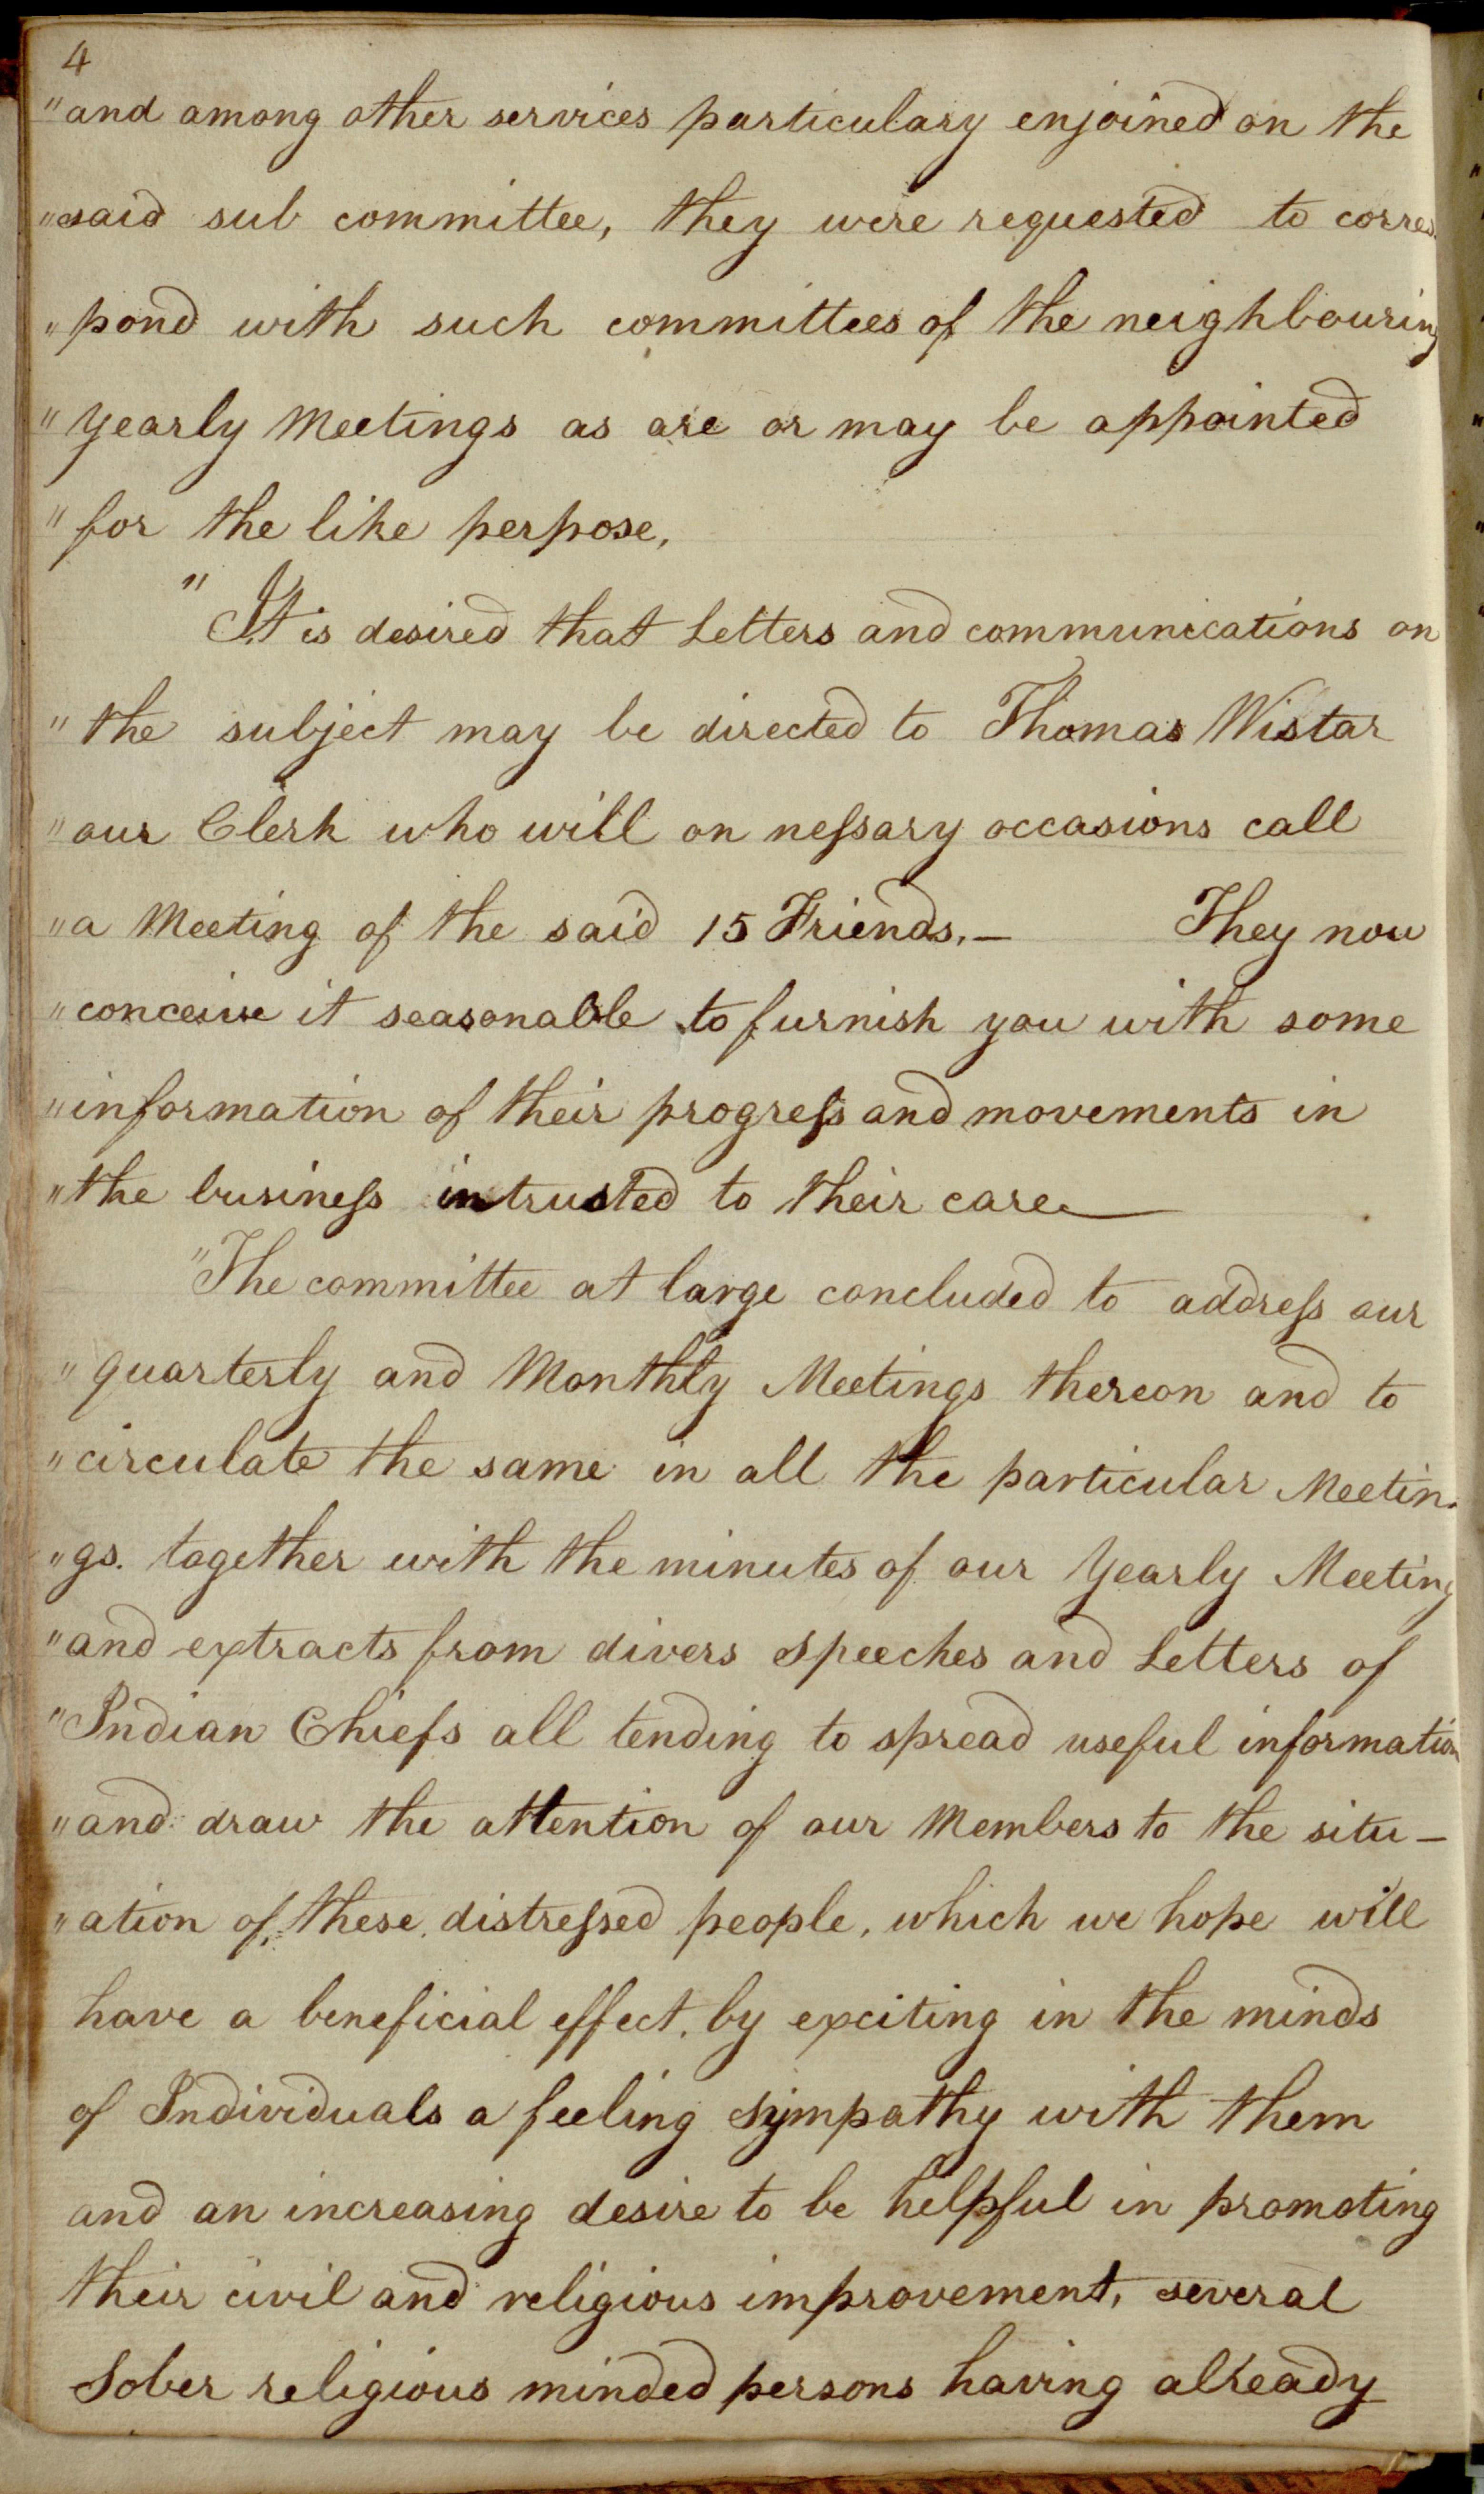 4
"and among other services particulary enjoined on the
"said sub committee, they were requested to corres
"pond with such committees of the neighbouring
"yearly Meetings as are or may be appointed
"for the like perpose,
"It is desired that Letters and communications on
"the subject may be directed to Thomas Wistar
"our Clerk who will on neſsary occasions call
"a Meeting of the said 15 Friends.— They now
"conceive it seasonable to furnish you with some
"information of their progreſs and movements in
"the busineſs intrusted to their care
"The committee at large concluded to addreſs our
"quarterly and Monthly Meetings thereon and to
"circulate the same in all the particular Meetin-
"gs. together with the minutes of our Yearly Meeting
"and extracts from divers Speeches and Letters of
"Indian Chiefs all tending to spread useful information
"and draw the attention of our Members to the situ-
"ation of these distreſsed people, which we hope will
have a beneficial effect, by exciting in the minds
of Individuals a feeling Sympathy with them
and an increasing desire to be helpful in promoting
their civil and religious improvement, several
Sober religious minded persons having already